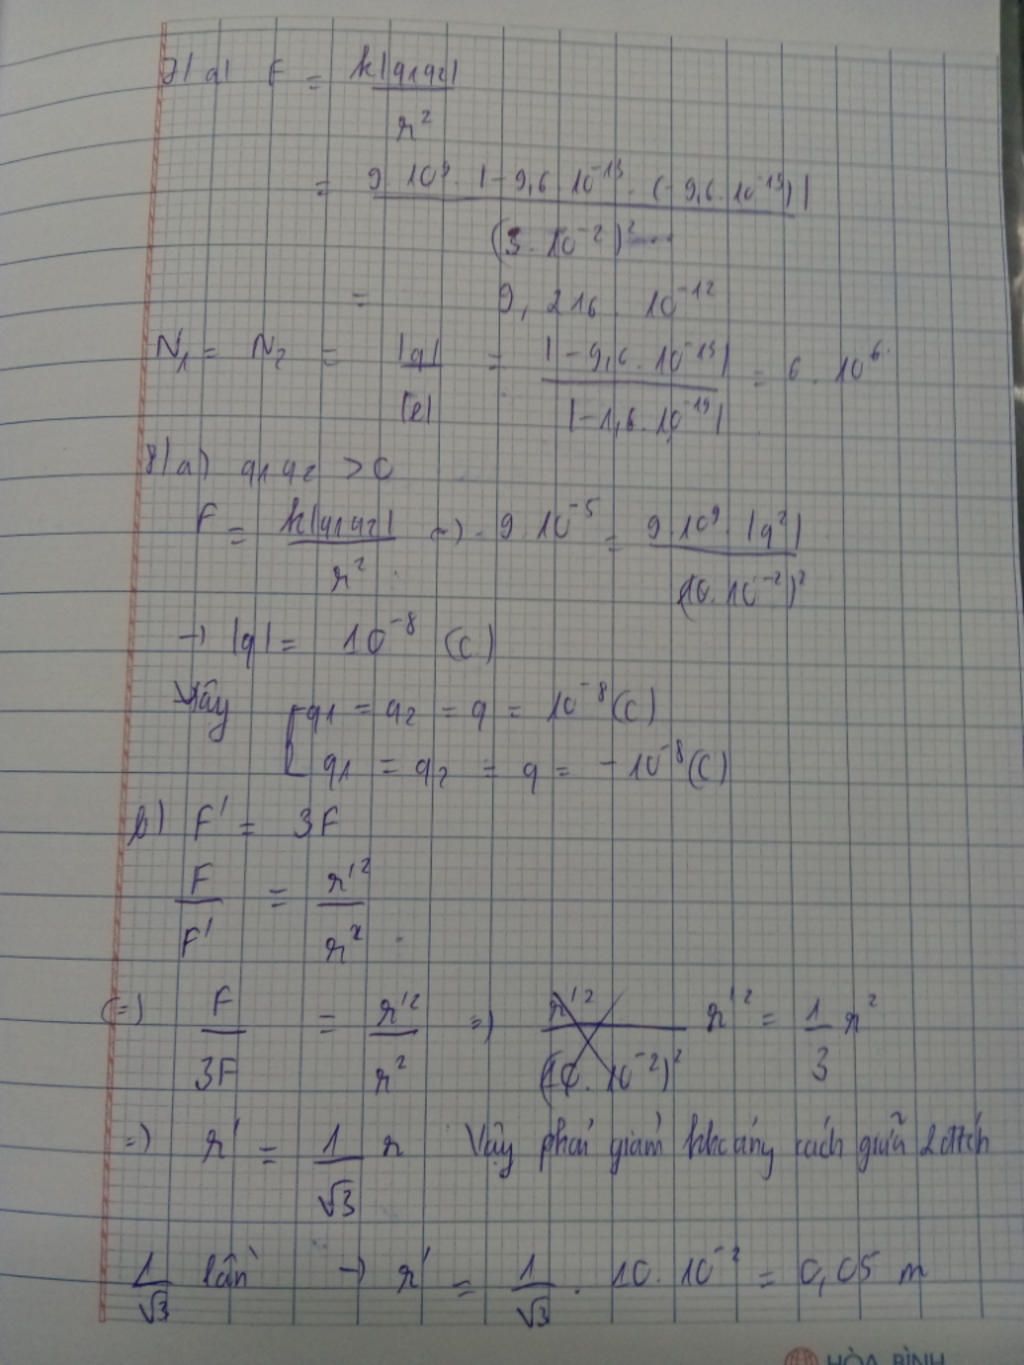 7| a| F = k|q1q2| / r²
= 9.10⁹.|-9,6.10⁻¹³.(-9,6.10⁻¹³)| / (3.10⁻²)²
= 9,216.10⁻¹²
N₁ = N₂ = |q| / |e| = |-9,6.10⁻¹³| / |-1,6.10⁻¹⁹| = 6.10⁶
8| a) q1q2 > 0
F = k|q1q2| / r² → 9.10⁻⁵ = 9.10⁹.|q²| / (10.10⁻²)²
→ |q| = 10⁻⁸ (C)
Vậy [ q1 = q2 = q = 10⁻⁸ (C)
q1 = q2 = q = -10⁻⁸ (C)
b) F' = 3F
F / F' = r'² / r²
(=) F / 3F = r'² / r² => r'² / (10.10⁻²)² r'² = 1/3 r²
=) r' = 1/√3 r Vậy phải giảm khoảng cách giữa 2 đtích
1/√3 lần → r' = 1/√3 . 10.10⁻² = 0,05 m
HÒA BÌNH